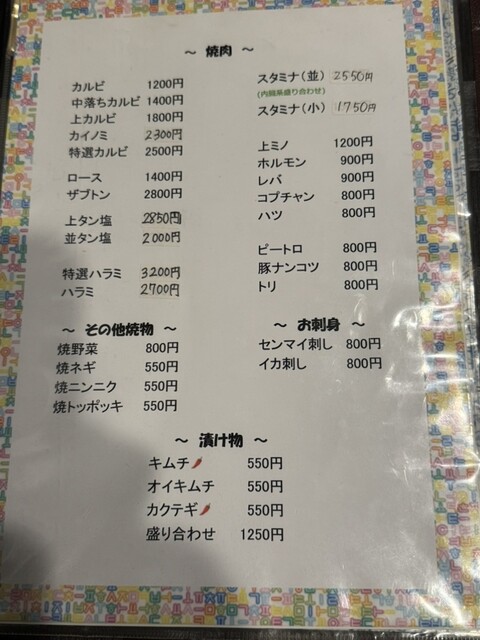 ～ 焼肉 ～
カルビ 1200円
中落ちカルビ 1400円
上カルビ 1800円
カイノミ 2300円
特選カルビ 2500円
ロース 1400円
ザブトン 2800円
上タン塩 2850円
並タン塩 2000円
特選ハラミ 3200円
ハラミ 2700円
スタミナ（並） 2550円
(内臓系盛り合わせ)
スタミナ（小） 1750円
上ミノ 1200円
ホルモン 900円
レバ 900円
コプチャン 800円
ハツ 800円
ピートロ 800円
豚ナンコツ 800円
トリ 800円
～ その他焼物 ～
焼野菜 800円
焼ネギ 550円
焼ニンニク 550円
焼トッポッキ 550円
～ お刺身 ～
センマイ刺し 800円
イカ刺し 800円
～ 漬け物 ～
キムチ 550円
オイキムチ 550円
カクテギ 550円
盛り合わせ 1250円